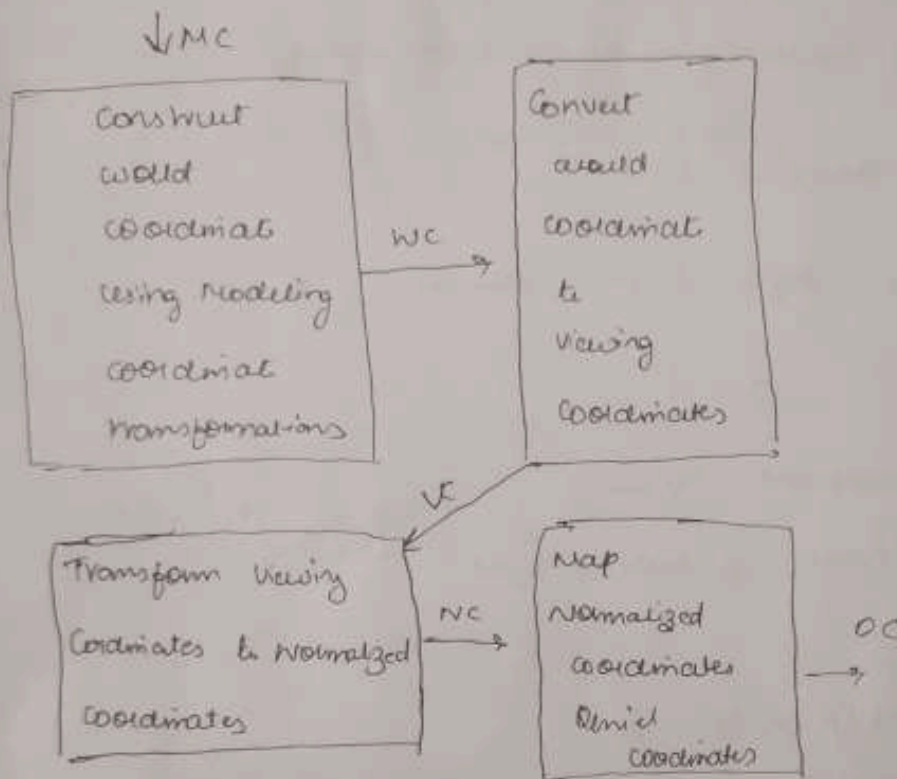 MC
Construct
world
coordinat
Using Modeling
coordinat
transformations
WC
Convert
world
coordinat
to
viewing
coordinates
VC
Transform viewing
Cordinates to Normalized
coordinates
NC
Map
Normalized
coordinates
coordinates
DC